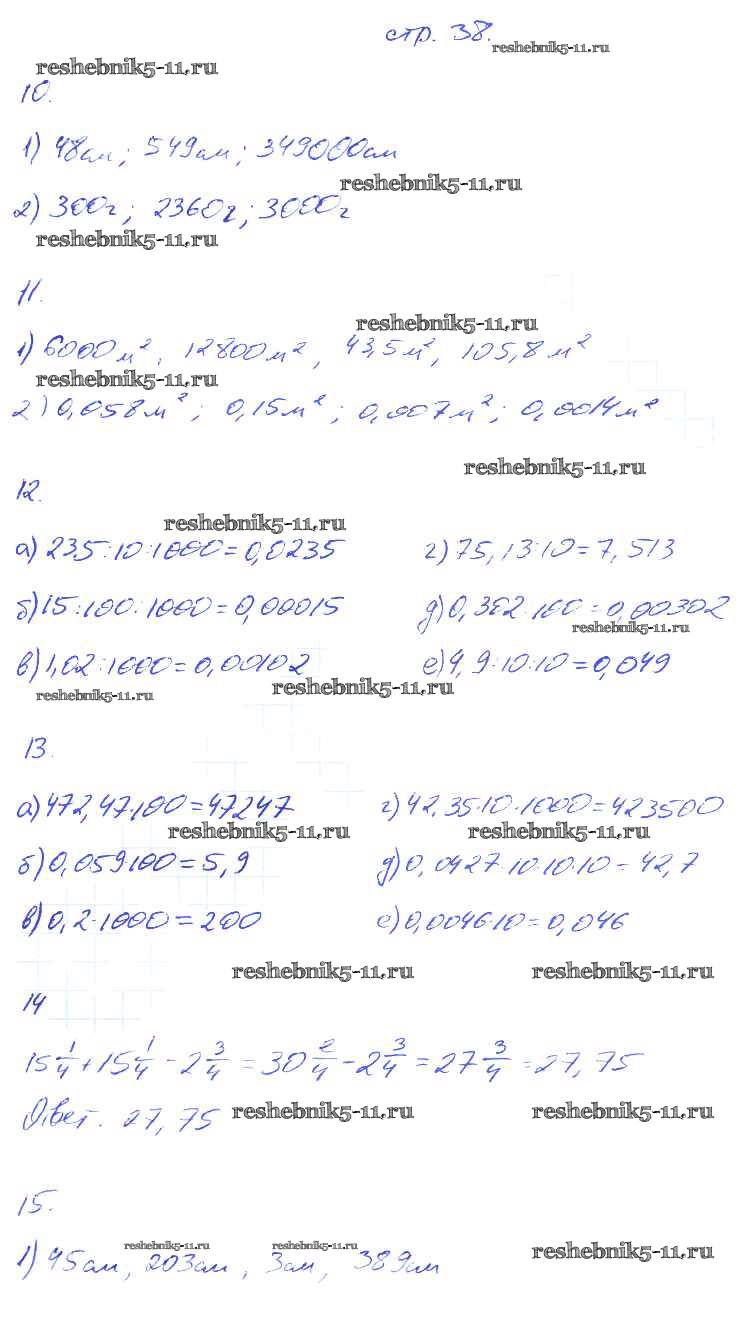 стр. 38.
reshebnik5-11.ru
reshebnik5-11.ru
10.
1) 48см; 549см; 349000см
reshebnik5-11.ru
2) 300г; 2360г; 3000г
reshebnik5-11.ru
11.
reshebnik5-11.ru
1) 6000м², 12800м², 43,5м², 105,8м²
reshebnik5-11.ru
2) 0,058м²; 0,15м²; 0,007м²; 0,0014м²
reshebnik5-11.ru
12.
reshebnik5-11.ru
а) 235:10:1000=0,0235 г) 75,13:10=7,513
б) 15:100:1000=0,00015 д) 0,302:100=0,00302
reshebnik5-11.ru
в) 1,02:1000=0,00102 е) 4,9:10:10=0,049
reshebnik5-11.ru reshebnik5-11.ru
13.
а) 472,47·100=47247 г) 42,35·10·1000=423500
reshebnik5-11.ru reshebnik5-11.ru
б) 0,059·100=5,9 д) 0,0427·10·10·10=42,7
в) 0,2·1000=200 е) 0,0046·10=0,046
reshebnik5-11.ru reshebnik5-11.ru
14
15 1/4 + 15 1/4 - 2 3/4 = 30 2/4 - 2 3/4 = 27 3/4 = 27,75
Ответ. 27,75
reshebnik5-11.ru reshebnik5-11.ru
15.
reshebnik5-11.ru reshebnik5-11.ru reshebnik5-11.ru
1) 45см, 203см, 3см, 389см